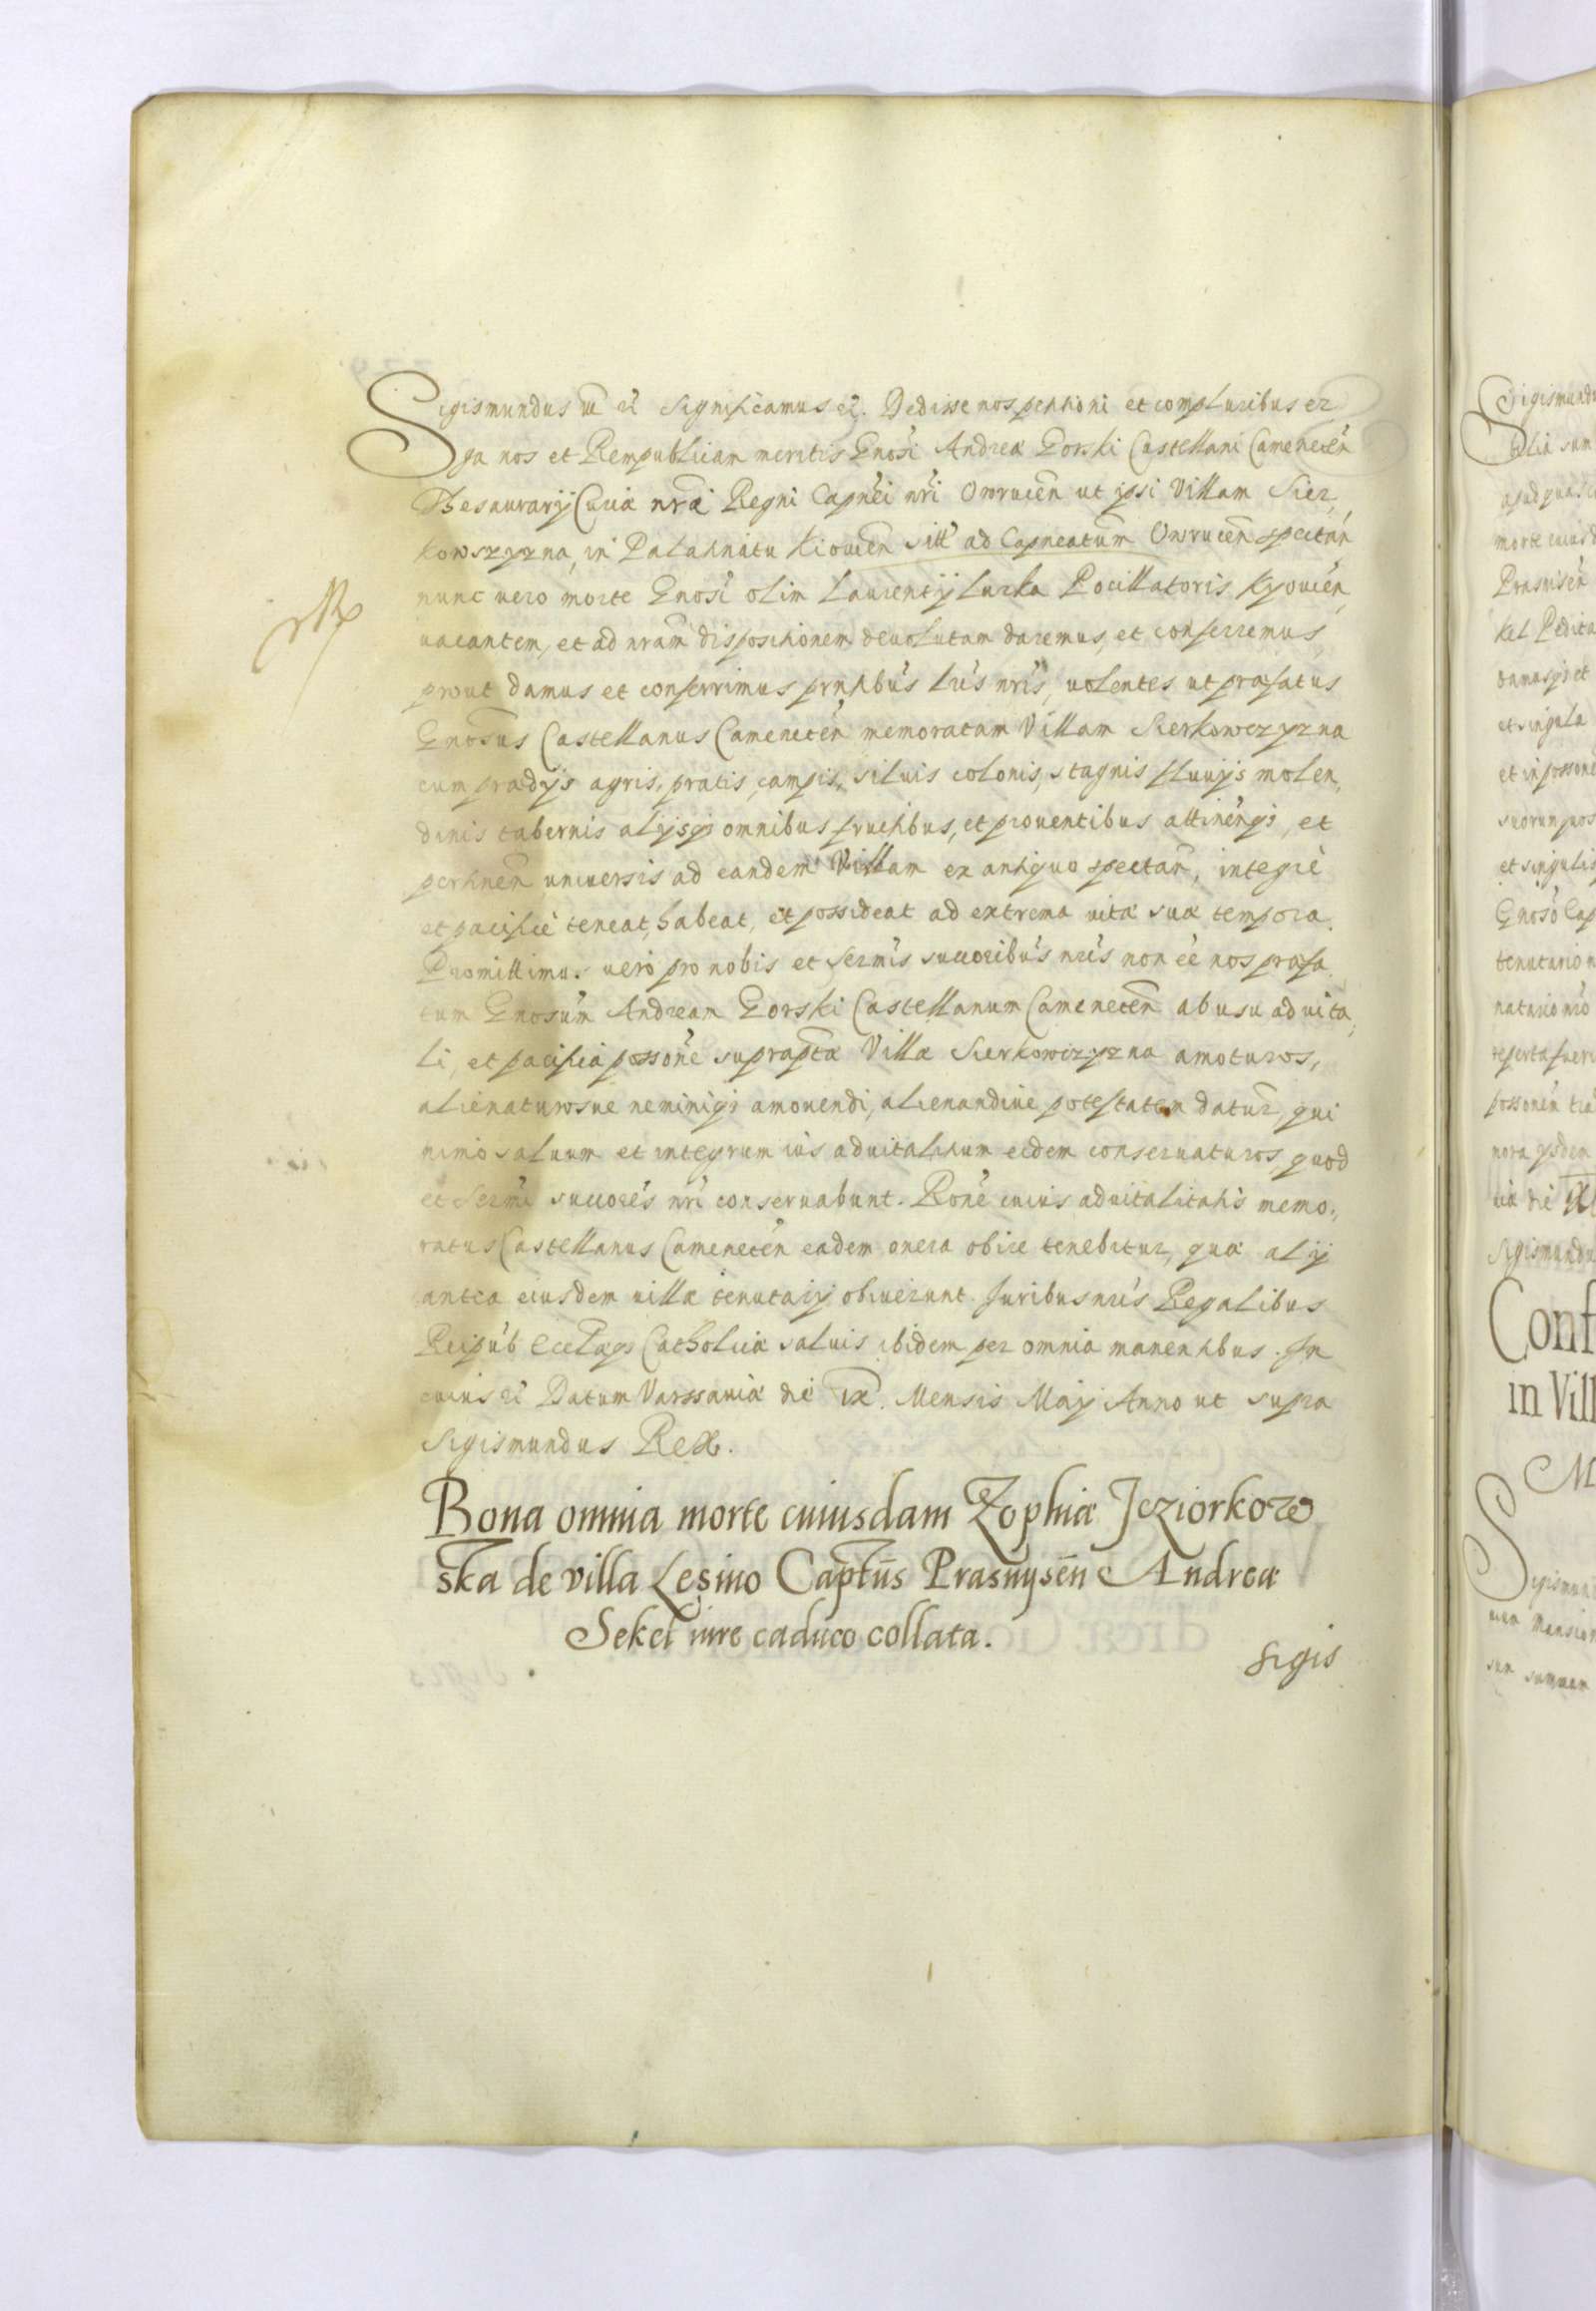 Sigismundus etc. Significamus etc. Dedisse nos petitioni et compluribus er
ga nos et Rempublicam meritis Gnosi Andreæ Gorski Castellani Camenecen
Thesaurarij Curiæ nræ Regni Capnei nri Owrucen ut ipsi Villam Sier,
kowszyzna, in Palatinatu Kiouien sitt ad Capneatum Owrucen spectan
nunc uero morte Gnosi olim Laurentij Lurka Pocillatoris Kyouien,
uacantem, et ad nram dispositionem deuolutam daremus, et conferremus,
prout damus et conferrimus pntibus lris nris, uolentes ut præfatus
Gnosus Castellanus Camenecen memoratam Villam Sierkowczyzna
cum prædijs agris, pratis, campis, siluis colonis, stagnis fluuijs molen,
dinis tabernis alijsq; omnibus fructibus, et prouentibus attinenq;, et
pertinen uniuersis ad eandem Villam ex antiquo spectan, integre
et pacifice teneat, habeat, et possideat ad extrema uitæ suæ tempora.
Promittimus uero pro nobis et Sermis succoribus nris non ee nos præfa
tum Gnosum Andream Gorski Castellanum Camenecen ab usu aduita,
li, et pacifica possone suprapta Villæ Sierkowczyzna amoturos,
alienaturosue neminiq; amouendi, alienandiue potestatem datur, qui
nimo saluum et integrum ius aduitalitium eidem conseruaturos, quod
et Sermi succores nri conseruabunt. Rone cuius aduitalitatis memo,
ratus Castellanus Camenecen eadem onera obire tenebitur, quæ alij
antea eiusdem uillæ tenutarij obiuerunt. Juribus nris Regalibus
Reipub Eccl[i]æq; Catholicæ saluis ibidem per omnia manentibus. In
cuius ei Datum Varssauiæ die IX. Mensis Maij Anno ut supra
Sigismundus Rex.
Bona omnia morte cuiusdam Zophiæ Jeziorkow
ska de villa Leşino Captūs Prasnysēn Andreæ
Sekel iure caduco collata.
Sigis
Sigismundu
morte eiusd
Prasnisen
et singula
et in possone
suorum pos
et singulis
Gnoso Cap
tenutario n
Sigismundu
Conf
in Vill
M
Sigismund